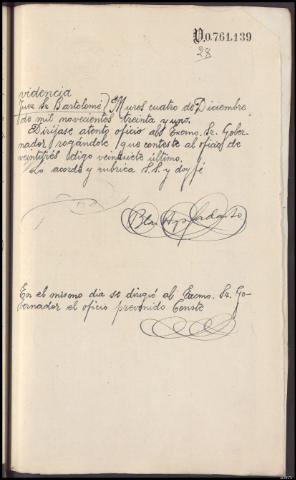 P.0.761.139
28
videncia
Juez Sr Bartolomé) Mures cuatro de Diciembre
de mil novecientos treinta y uno.
Dirijase atento oficio al Excmo. Sr. Gober-
nador rogándole que conteste al oficio de
veintitres digo veinticete último.
Lo acordó y rubrica S.S. y doy fé
En el mismo dia se dirigió al Excmo. Sr. Go-
bernador el oficio prevenido Conste